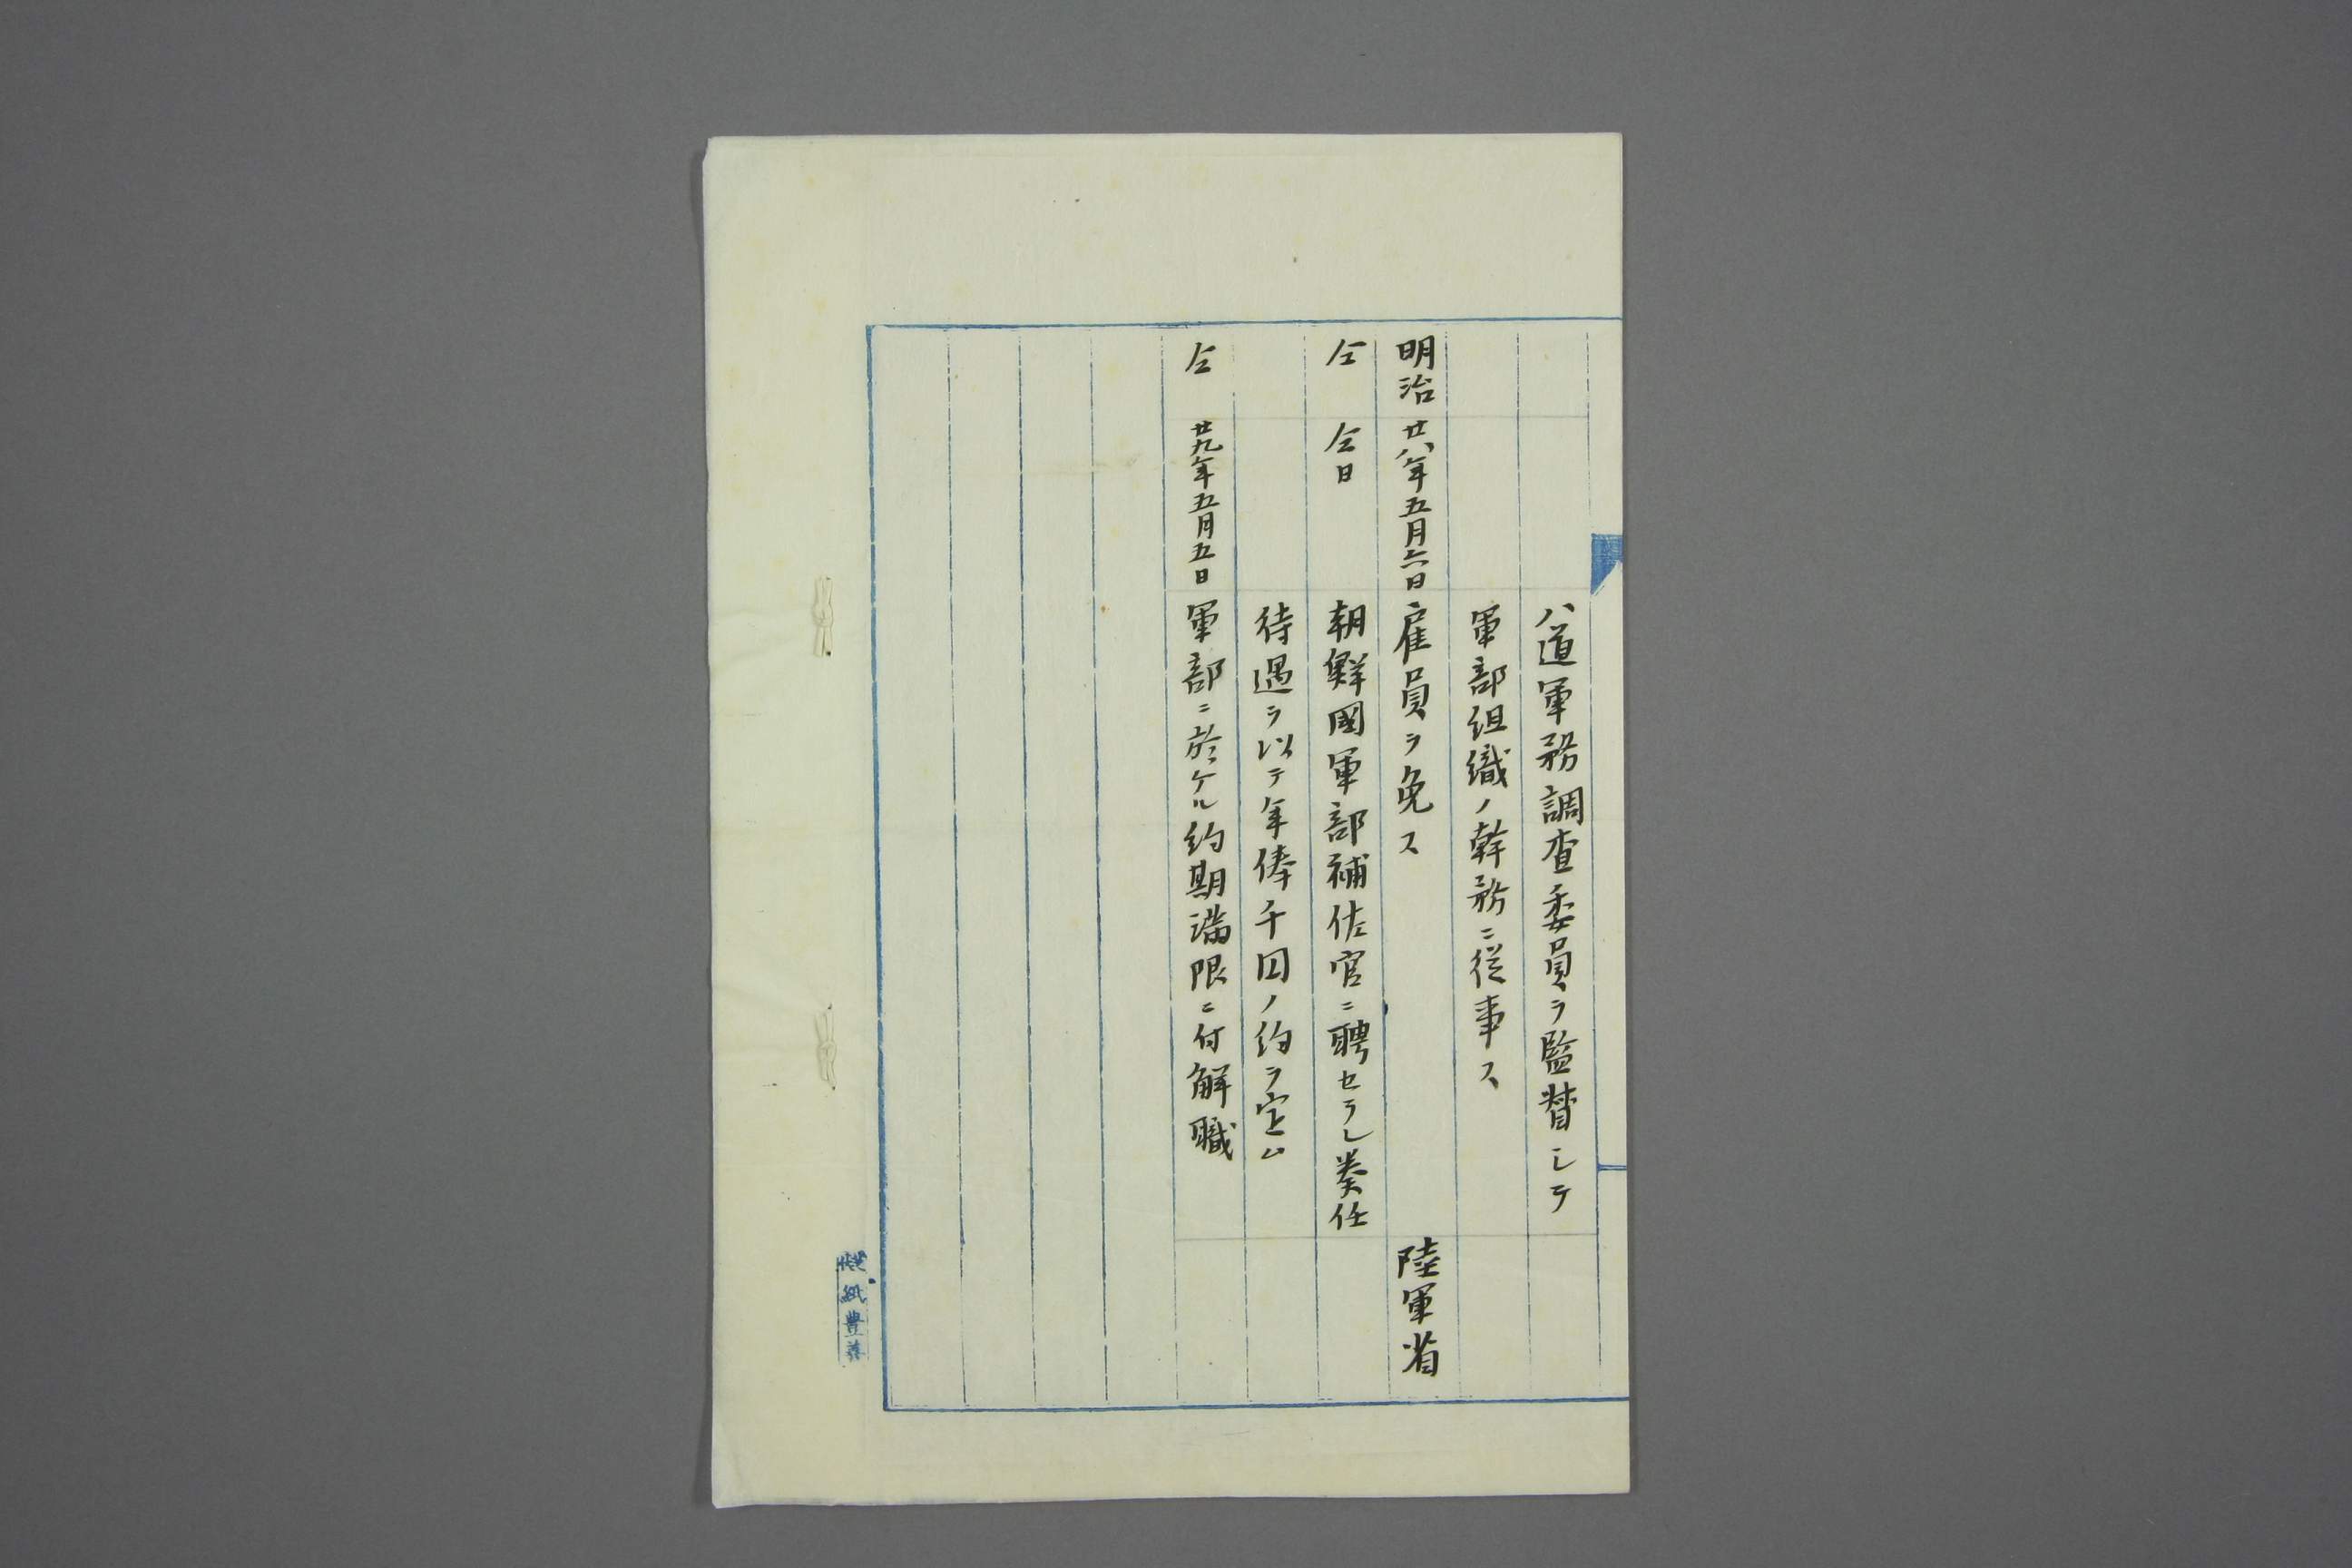 八道軍務調査委員ヲ監督シテ
軍部組織ノ幹務ニ従事ス
明治 廿八年五月六日 雇員ヲ免ス 陸軍省
仝 仝日 朝鮮國軍部補佐官ニ聘セラレ奏任
待遇ヲ以テ年俸千円ノ約ヲ定ム
仝 廿九年五月五日 軍部ニ於ケル約期満限ニ付解職